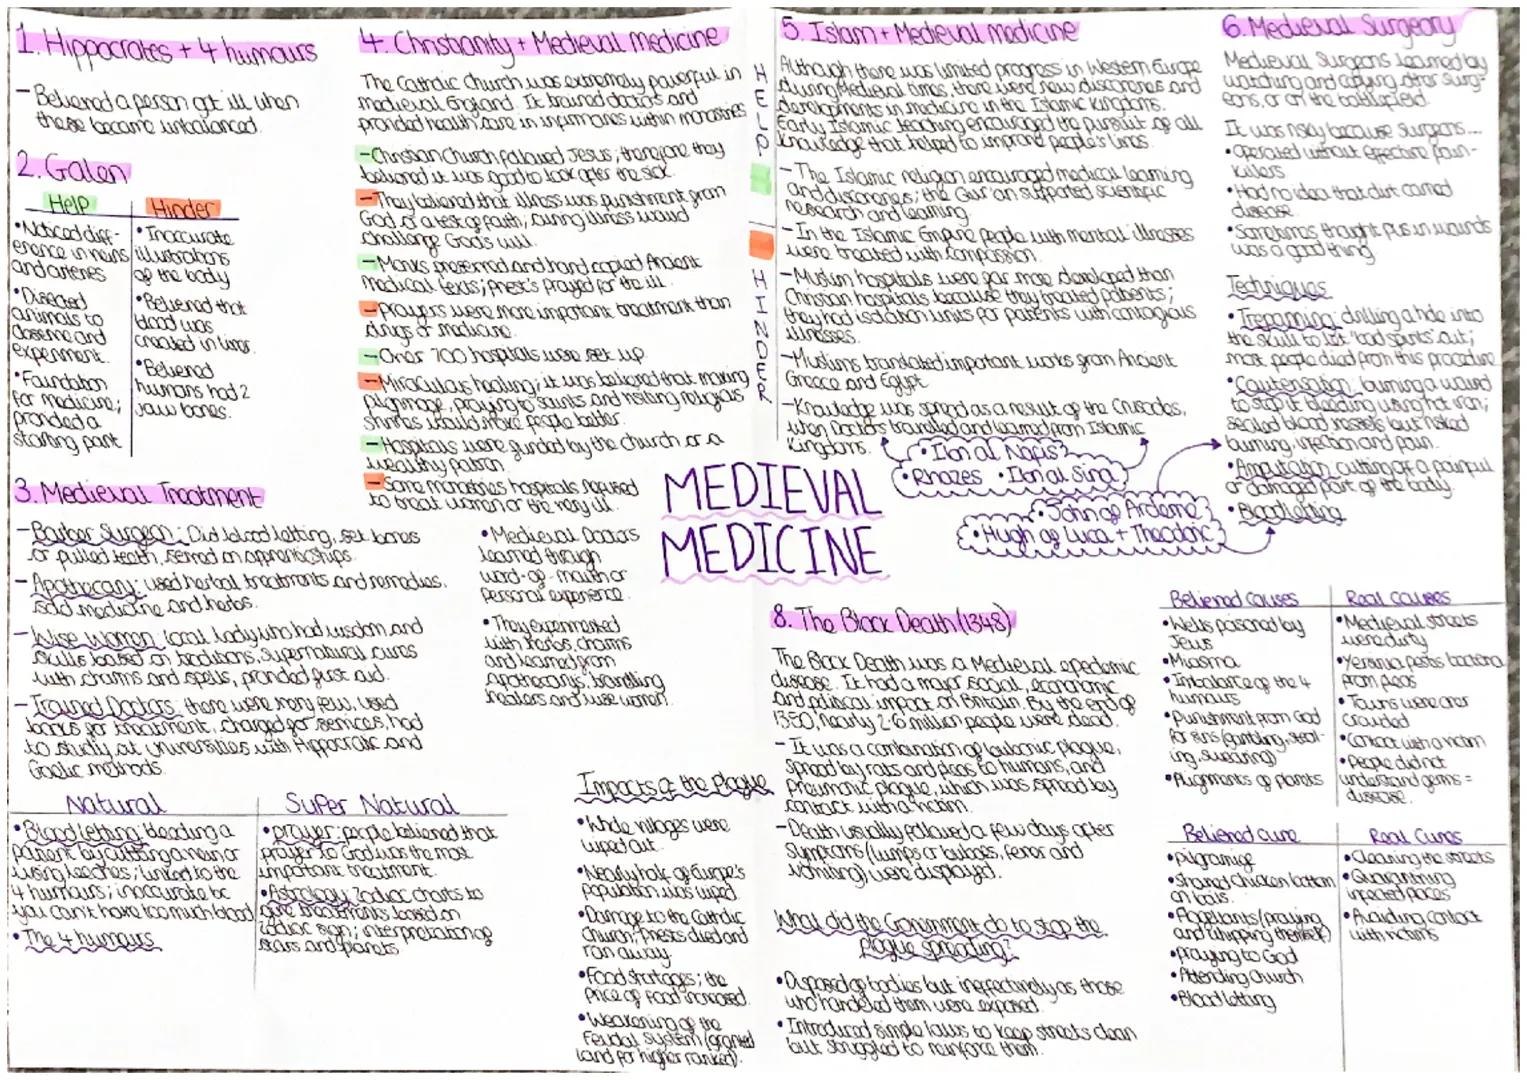 1. Hippocrates + 4 humours
- Believed a person got ill when
these became unbalanced.
2. Galen
Help
Hinder
• Noticed diff-
erence in veins
and arteries
• Disected
animals to
observe and
experiment.
• Foundation
for medicine;
provided a
starting point
• Inaccurate
illustrations
of the body
• Believed that
blood was
created in liver.
• Believed
humans had 2
jaw bones.
3. Medieval Treatment
- Barber Surgeon: Did blood letting, set bones
or pulled teeth, served an apprenticeships.
- Apothecary: used herbal treatments and remedies.
sold medicine and herbs.
- Wise Woman: local lady who had wisdom and
skills based on traditions. Supernatural cures
with charms and spells, provided first aid.
- Trained Doctors: there were very few, used
books for treatment, charged for services, had
to study at universities with Hippocratic and
Gaelic methods.
• Medieval Doctors
learned through
word-of-mouth or
personal experience.
• They experimented
with herbs, charms
and learned from
apothecarys, travelling
healers and wise women.
Natural
Super Natural
• Blood letting: bleeding a
patient by cutting a vein or
using leeches; linked to the
4 humours; inaccurate bc
you can't have too much blood
• The 4 humours
• prayer: people believed that
prayer to God was the most
important treatment.
• Astrology: Zodiac charts to
give treatments based on
zodiac sign; interpretation of
stars and planets
4. Christianity + Medieval medicine
The Catholic Church was extremely powerful in
medieval England. It trained doctors and
provided health care in infirmaries within monastries
- Christian Church followed Jesus; therefore they
believed it was good to look after the sick.
- They believed that illness was punishment from
God or a test of faith; curing illness would
challenge God's will.
- Monks preserved and hand copied Ancient
medical texts; priest's prayed for the ill.
- Prayers were more important treatment than
drugs or medicine.
- Over 700 hospitals were set up
- Miraculous healing; it was believed that making
pilgrimage, praying to saints and visiting religious
shrines would make people better.
- Hospitals were funded by the church or a
wealthy patron.
- Some monastries hospitals refused
to treat women or the very ill.
HELP
HINDER
MEDIEVAL
MEDICINE
5. Islam + Medieval medicine
Although there was limited progress in Western Europe
during Medieval times, there were new discoveries and
developments in medicine in the Islamic kingdoms.
Early Islamic teaching encouraged the pursuit of all
knowledge that helped to improve people's lives.
- The Islamic religion encouraged medical learning
and discoveries; the Qur'an supported scientific
research and learning
- In the Islamic Empire people with mental illnesses
were treated with compassion.
- Muslim hospitals were far more developed than
Christian hospitals because they treated patients;
they had isolation units for patients with contagious
illnesses.
- Muslims translated important works from Ancient
Greece and Egypt
- Knowledge was spread as a result of the Crusades,
when Doctors travelled and learned from Islamic
Kingdoms.
• Ibn al Nafis
• Rhazes • Ibn al Sina
• John of Arderne
• Hugh of Luca + Theodoric
6. Medieval Surgeory
Medieval Surgeons learned by
watching and copying other surg-
eons, or on the battlefield.
It was risky because surgeons...
• operated without effective pain-
killers.
• Had no idea that dirt carried
disease.
• Sometimes thought pus in wounds
was a good thing
Techniques
• Trepanning: drilling a hole into
the skull to let 'bad spirits' out;
most people died from this procedure
• Cauterisation: burning a wound
to stop it bleeding using hot iron;
sealed blood vessels but risked
burning, infection and pain.
• Amputation cutting off a painful
or damaged part of the body.
• Bloodletting
8. The Black Death (1348)
The Black Death was a Medieval epedemic
disease. It had a major social, economic
and political impact on Britain. By the end of
1350, nearly 2.6 million people were dead.
- It was a combination of bubonic plague,
spread by rats and fleas to humans, and
pneumonic plague, which was spread by
contact with a victim.
- Death usually followed a few days after
symptoms (lumps or buboes, fever and
vomiting) were displayed.
What did the Government do to stop the
plague spreading?
• Disposed of bodies but ineffectively as those
who handeled them were exposed.
• Introduced simple laws to keep streets clean
but struggled to reinforce them.
Impacts of the Plague
• Whole villages were
wiped out.
• Nearly half of Europe's
population was wiped
• Damage to the Catholic
Church; Priests died and
ran away.
• Food shortages; the
Price of food increased.
• Weakening of the
Feudal System (granted
land for higher ranked).
Believed causes
Real causes
• Wells poisoned by
Jews
• Miasma
• Imbalance of the 4
humours
• Punishment from God
for sins (gambling, steal-
ing, swearing)
• Alignments of planets
• Medieval streets
were dirty
• Yersinia pestis bacteria
from fleas
• Towns were over
crowded
• Contact with a victim
• People did not
understand germs =
disease.
Believed cure
Real Cures
• pilgramige
• shaved chicken bottom
on boils.
• Flagellants (praying
and whipping themself)
• praying to God
• Attending Church
• Blood letting
• Cleaning the streets
• Quarantining
infected places
• Avoiding contact
with victims